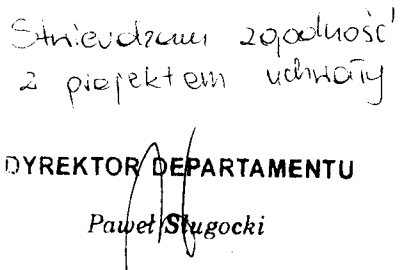 Stwierdzam zgodność
z projektem uchwały
DYREKTOR DEPARTAMENTU
Paweł Sługocki